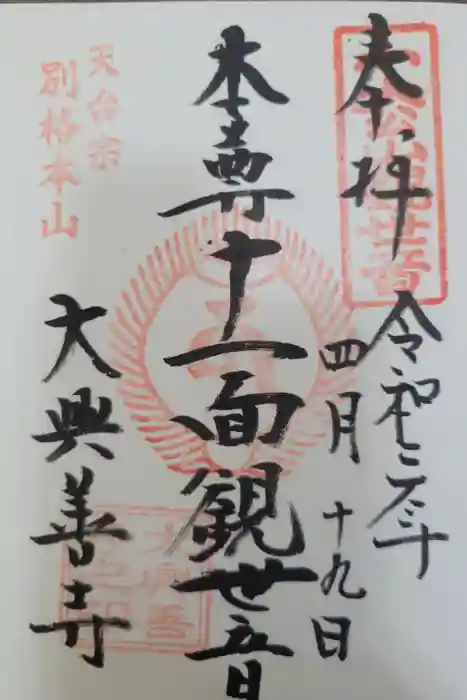 奉拝
令和二年
四月十九日
本尊十一面觀世音
大興善寺
天台宗
別格本山
小松山観世音